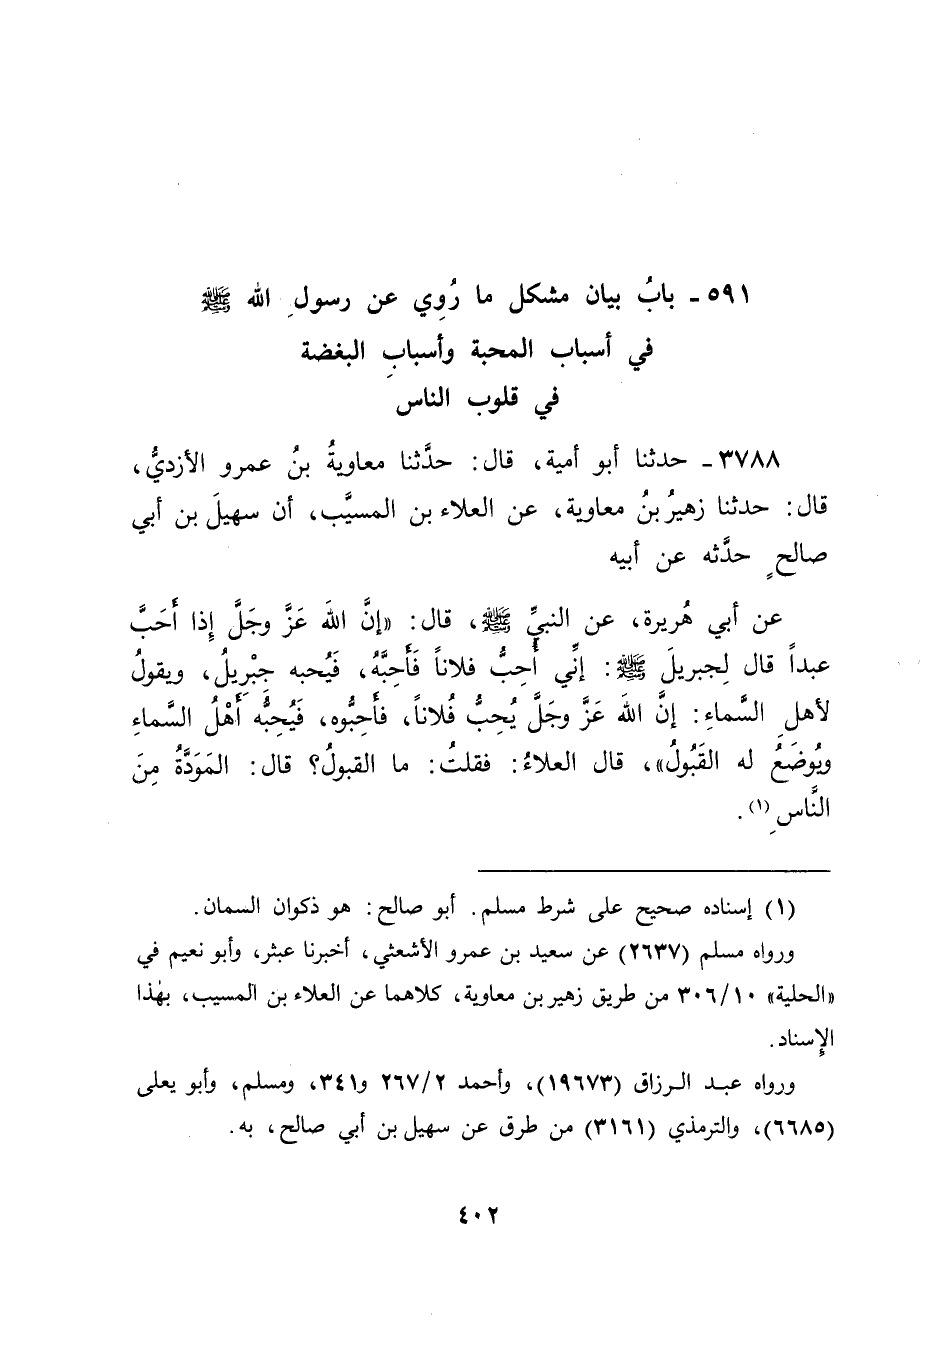 ٥٩١ - بابُ بيان مشكل ما رُوِي عن رسولِ الله ﷺ
في أسباب المحبة وأسبابِ البغضة
في قلوب الناس
٣٧٨٨ - حدثنا أبو أمية، قال: حدَّثنا معاويةُ بنُ عمرو الأزديُّ،
قال: حدثنا زهيرُ بنُ معاوية، عن العلاء بن المسيَّب، أن سهيلَ بن أبي
صالحٍ حدَّثه عن أبيه
عن أبي هُريرة، عن النبيِّ ﷺ، قال: «إنَّ اللهَ عَزَّ وجَلَّ إذا أَحَبَّ
عبداً قال لِجبريلَ ﷺ: إنِّي أُحِبُّ فلاناً فَأَحِبَّهُ، فَيُحبه جِبْرِيلُ، ويقولُ
لأهلِ السَّماءِ: إنَّ اللهَ عَزَّ وجَلَّ يُحِبُّ فُلاناً، فأَحِبُّوه، فَيُحِبُّه أَهْلُ السَّماءِ
ويُوضَعُ له القَبُولُ»، قال العلاءُ: فقلتُ: ما القبولُ؟ قال: المَوَدَّةُ مِنَ
النَّاسِ(١).
(١) إسناده صحيح على شرط مسلم. أبو صالح: هو ذكوان السمان.
ورواه مسلم (٢٦٣٧) عن سعيد بن عمرو الأشعثي، أخبرنا عبثر، وأبو نعيم في
«الحلية» ٣٠٦/١٠ من طريق زهير بن معاوية، كلاهما عن العلاء بن المسيب، بهٰذا
الإِسناد.
ورواه عبد الرزاق (١٩٦٧٣)، وأحمد ٢٦٧/٢ و٣٤١، ومسلم، وأبو يعلى
(٦٦٨٥)، والترمذي (٣١٦١) من طرق عن سهيل بن أبي صالح، به.
٤٠٢